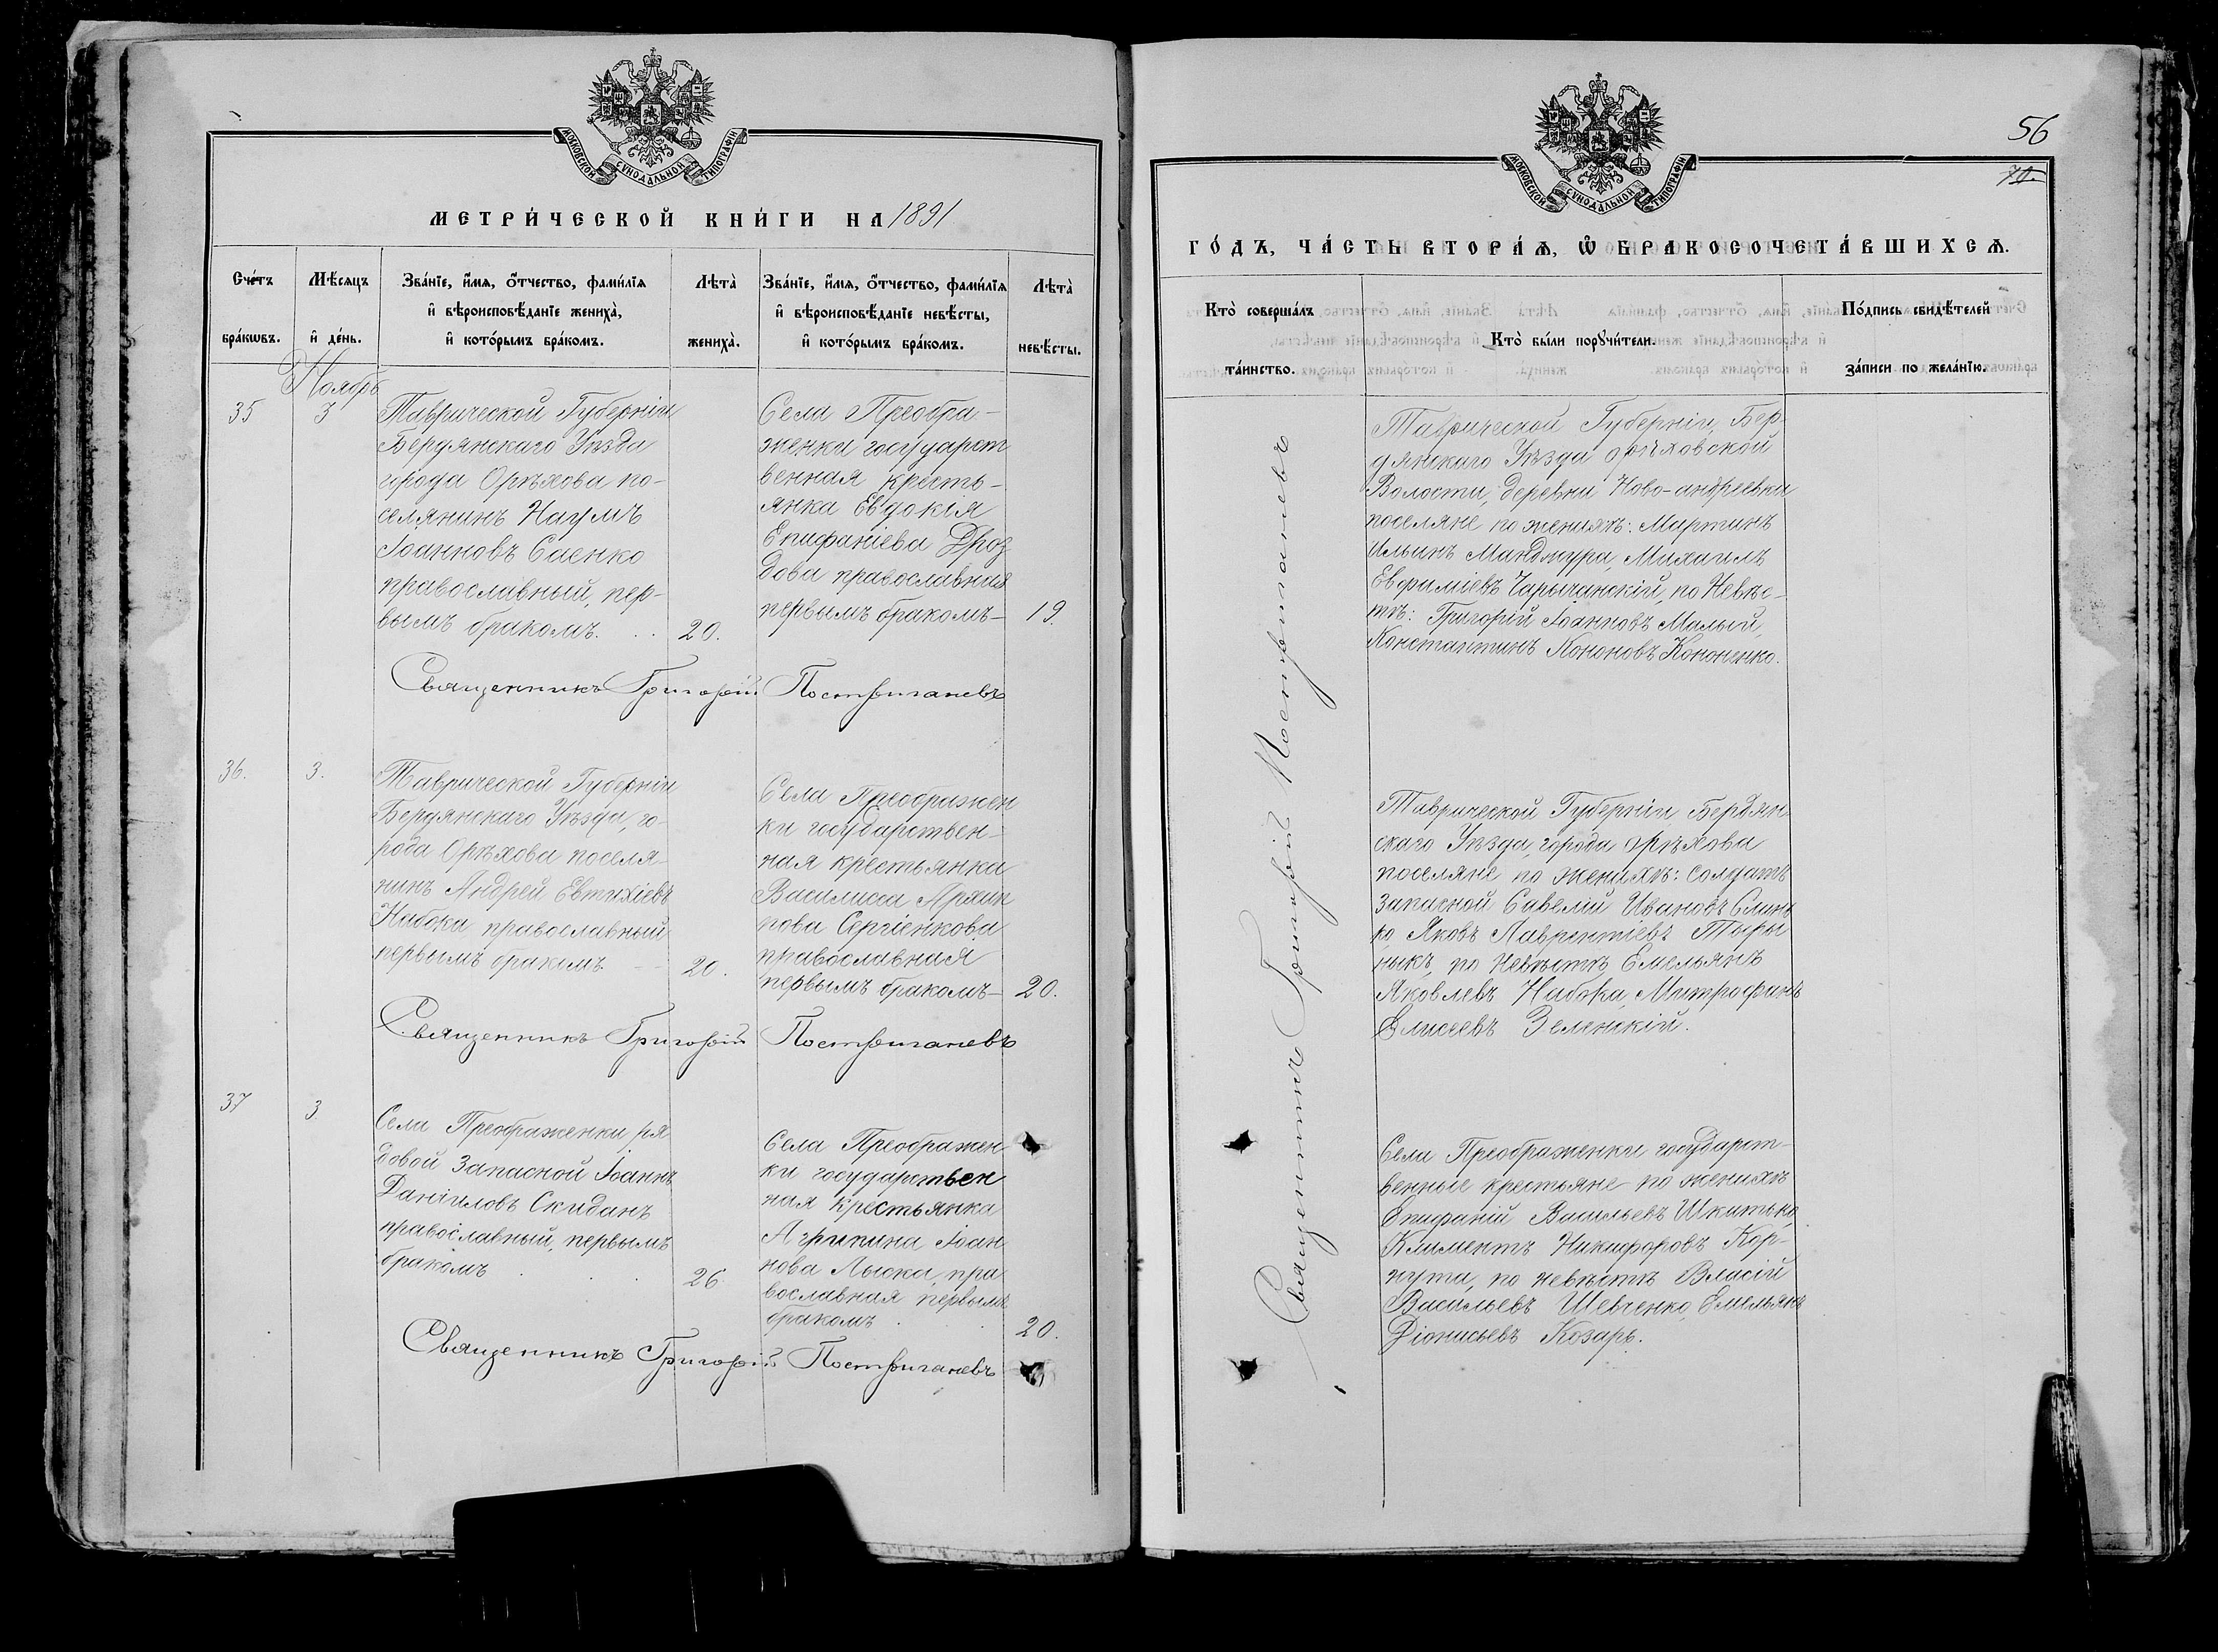 МОСКОВСКОЙ СУНОДАЛЬНОЙ ТИПОГРАФІИ
МЕТРИ́ЧЕСКОЙ КНИ́ГИ НА 1891
Сче́тъ
бра́кѡвъ.
Мѣ́сяцъ
и҆ де́нь.
Зва́нїе, и҆́мѧ, ѻ҆́тчество, фами́лїѧ
и҆ вѣроисповѣ́данїе жениха̀,
и҆ кото́рымъ бра́комъ.
Лѣта̀
жениха̀.
Зва́нїе, и҆́мѧ, ѻ҆́тчество, фами́лїѧ
и҆ вѣроисповѣ́данїе невѣ́сты,
и҆ кото́рымъ бра́комъ.
Лѣта̀
невѣ́сты.
Ноябрь
35
3
Таврической Губерніи
Бердянскаго Уѣзда
города Орѣхова по-
селянинъ Наумъ
Іоанновъ Саенко
православный, пер-
вымъ бракомъ. . .
20.
Села Преобра-
женки государст
венная кресть-
янка Евдокія
Епифаніева Дроз
дова православная
первымъ бракомъ-
19.
Священникъ Григорій Постриганевъ
36.
3.
Таврической Губерніи
Бердянскаго Уѣзда, го-
рода Орѣхова поселя-
нинъ Андрей Евтихіевъ
Набока православный
первымъ бракомъ - -
20.
Села Преображен
ки государствен-
ная крестьянка
Василиса
Сергіенкова
православная
первымъ бракомъ-
20.
Священникъ Григорій Постриганевъ
37
3.
Села Преображенки ря
довой запасной Іоаннъ
Даніиловъ Скиданъ
православный, первымъ
бракомъ . . .
26
Села Преображен
ки государствен
ная крестьянка
Агрипина Іоан
нова Лыска, пра
вославная первымъ
бракомъ . .
20.
Священникъ Григорій Постриганевъ
56
МОСКОВСКОЙ СУНОДАЛЬНОЙ ТИПОГРАФІИ
ГО́ДЪ, ЧА́СТЬ ВТОРА́Ѧ, Ѡ҆ БРАКОСОЧЕТА́ВШИХСѦ.
Кто̀ соверша́лъ
та́инство.
Кто̀ бы́ли порꙋчи́тели.
По́дпись свидѣ́телей
за́писи по жела́нїю.
Священникъ Григорій Постриганевъ
Таврической Губерніи, Бер-
дянскаго Уѣзда Орѣховской
Волости, деревни Ново-андреевки
поселяне по женихѣ: Мартинъ
Ильинъ Манджура, Михаилъ
Евфиміевъ Чарычанскій, по Невѣс-
тѣ: Григорій Іоанновъ Малый,
Константинъ Кононовъ Кононенко.
Таврической Губерніи Бердян
скаго Уѣзда, города Орѣхова
поселяне по женихѣ: солдатъ
запасной Савелій Ивановъ
Яковъ Лаврентіевъ
по Невѣстѣ Емельянъ
Яковлевъ Набока, Митрофанъ
Елисеевъ Зеленскій.
Села Преображенки государст-
венные крестьяне по женихѣ
Епифаній Васильевъ Шкитько,
Климентъ Никифоровъ Кор-
нута, по невѣстѣ Власій
Васильевъ Шевченко, Емельянъ
Діонисьевъ Козарь.